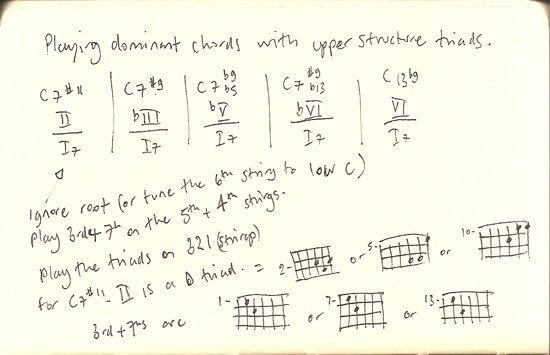 Playing dominant chords with upper structure triads.
C7#11 | C7#9 | C7b9b5 | C7#9b13 | C13b9
II | bIII | bV | bVI | VI
I7 | I7 | I7 | I7 | I7
Ignore root (or tune the 6th string to low C)
Play 3rd + 7th on the 5th + 4th strings.
Play the triads on 321 (strings)
for C7#11 - II is a D triad. = 2- or 5- or 10-
3rd + 7ths are 1- or 7- or 13-